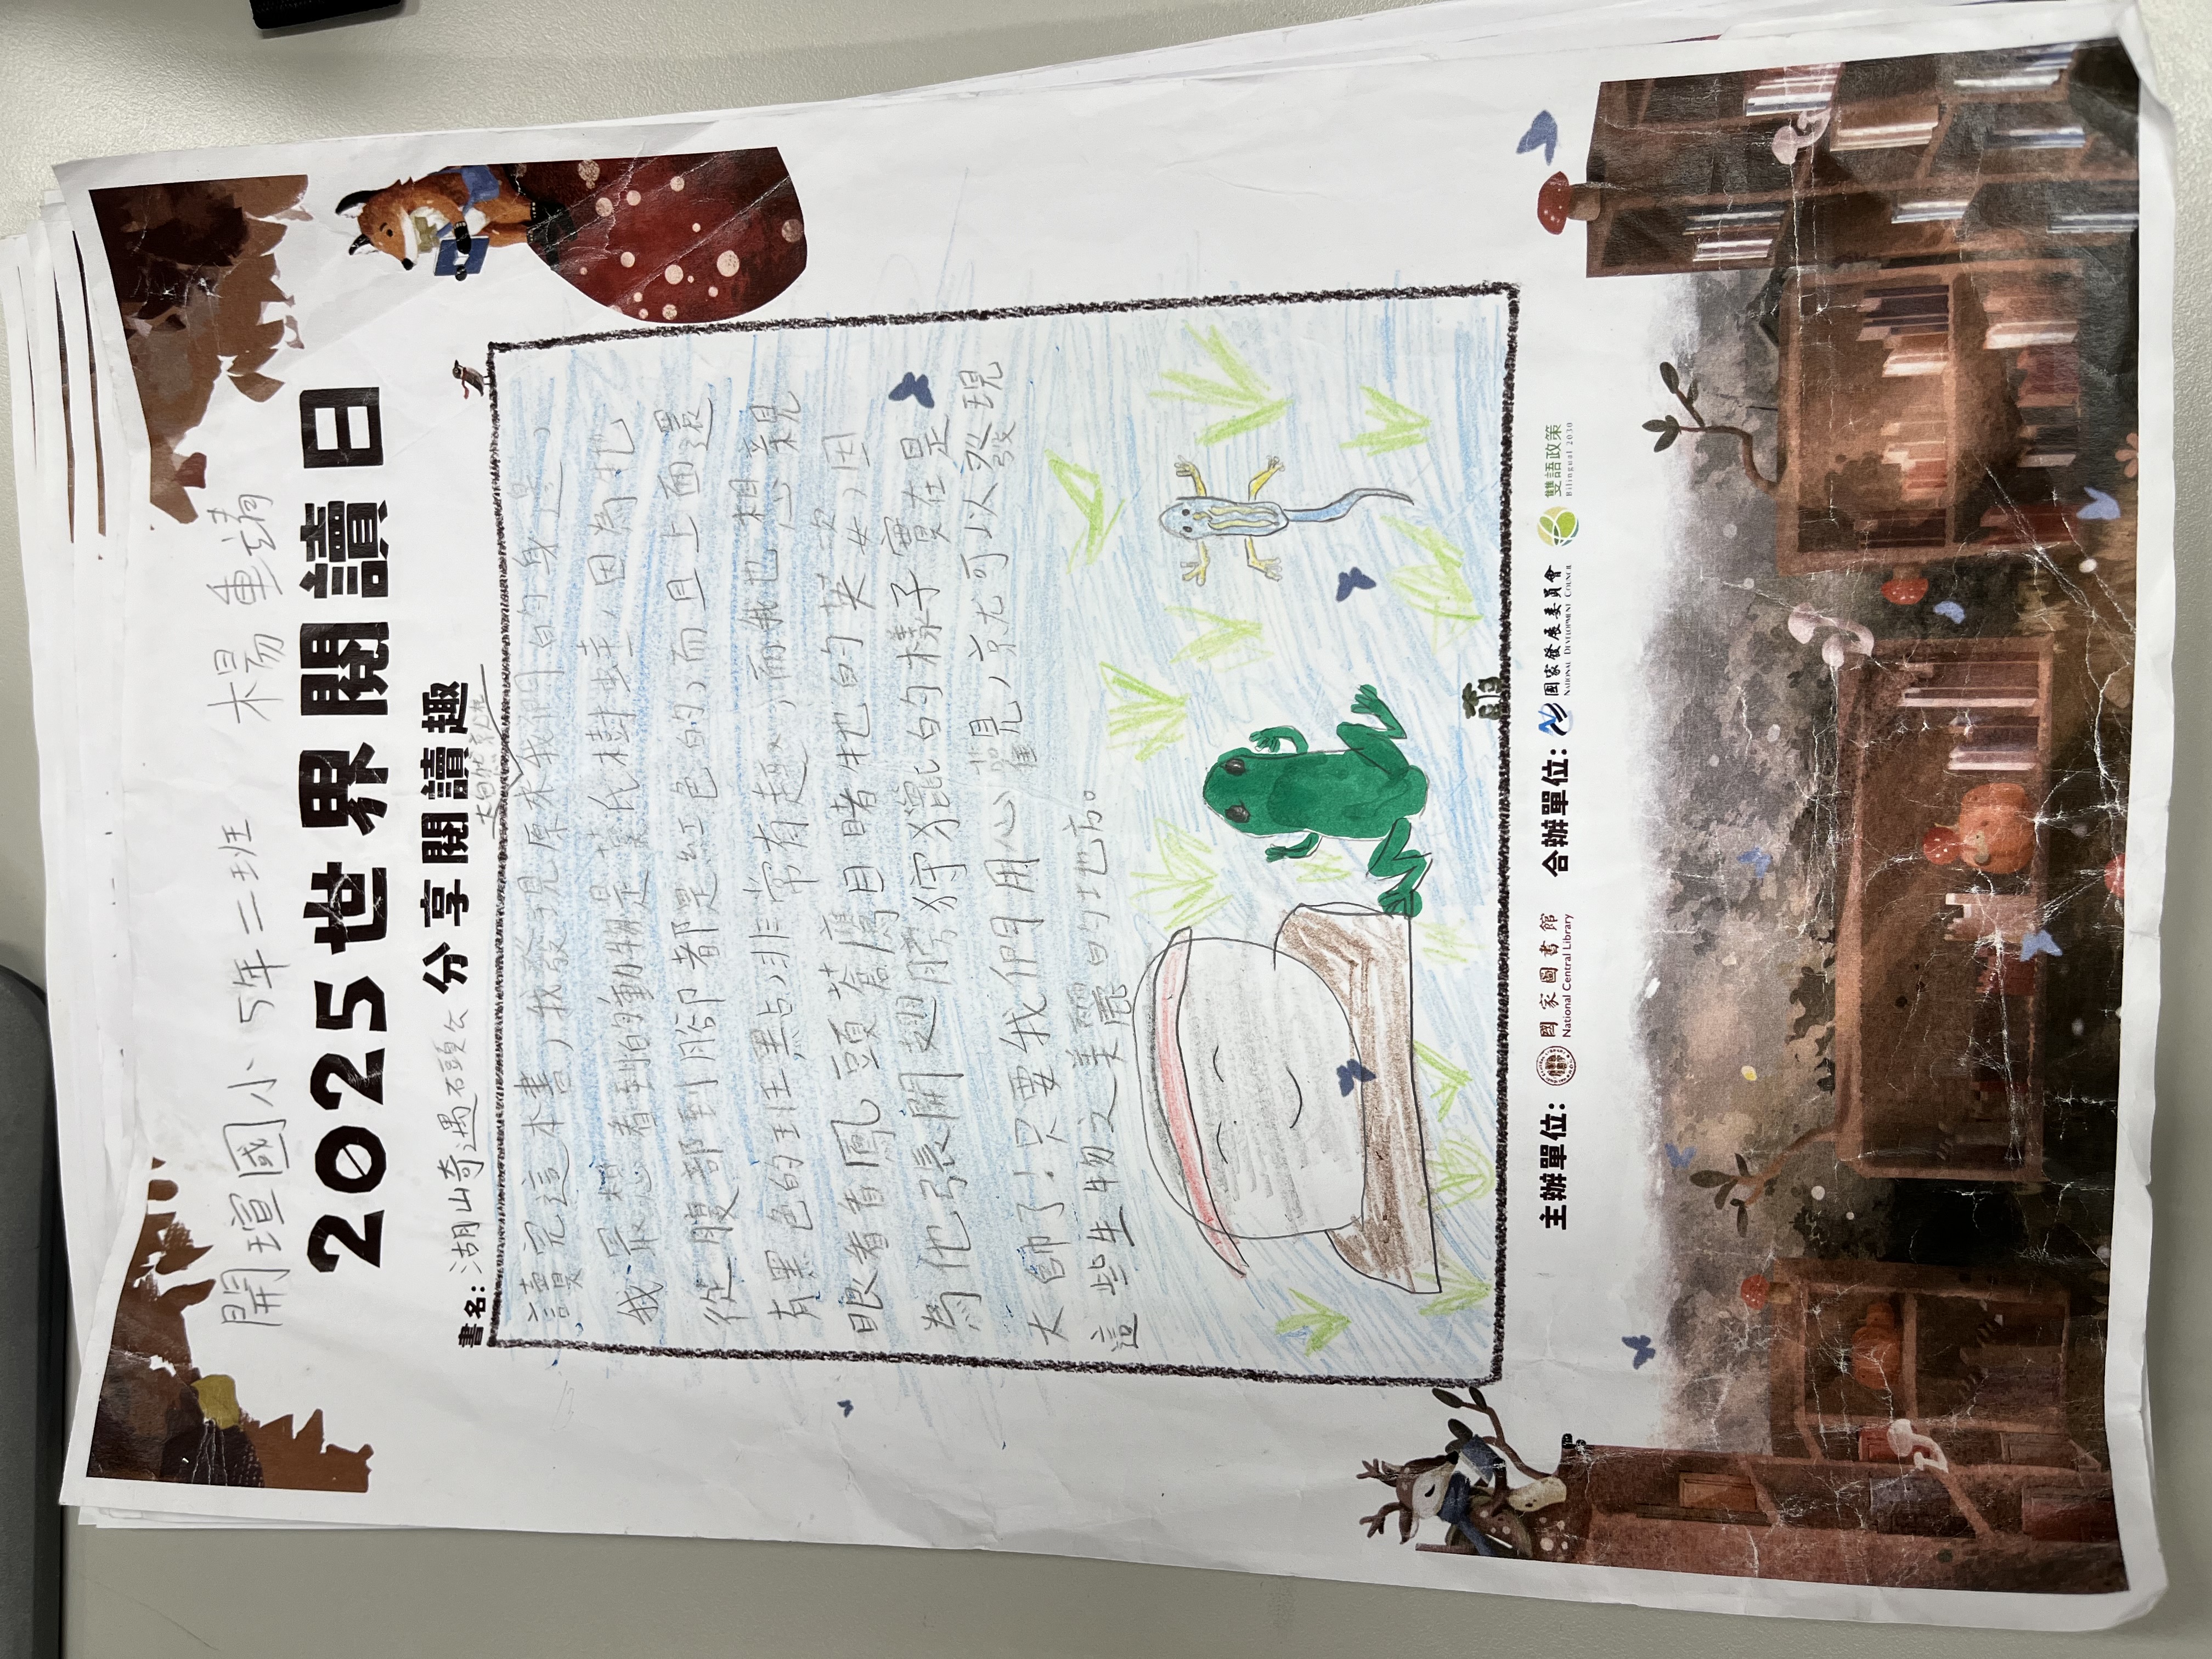 開瑄國小 5年二班 楊
2025世界閱讀日
分享閱讀趣
書名：湖山奇遇石頭公
讀完這本書，我發現原來我們的身邊
我最想看到的動物是莫氏樹蛙，因為牠
從腹部到腳都是紅色的，而且上面還
有黑色的斑點，非常有趣，而我也想親
眼看看鳳頭蒼鷹目睹牠的英姿，因
為他張開翅膀狩獵的樣子實在是
太帥了！只要我們用心觀，就可以發現
這些生物之美麗的地方。
主辦單位： 國家圖書館 National Central Library 合辦單位： 國家發展委員會 NATIONAL DEVELOPMENT COUNCIL 雙語政策 Bilingual 2030